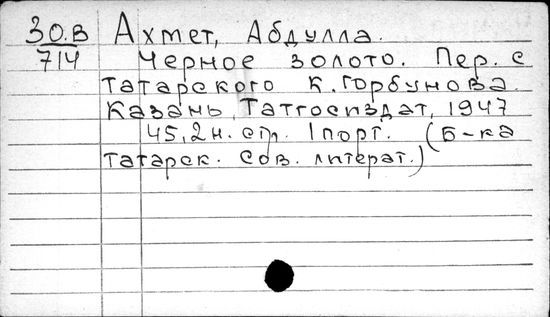 30.В Ахмет, Абдулла.
714 Черное золото. Пер. с
татарского К. Горбунова.
Казань, Татгосиздат, 1947
45, 2 н. стр. 1 порт. (Б-ка
татарск. сов. литерат.)